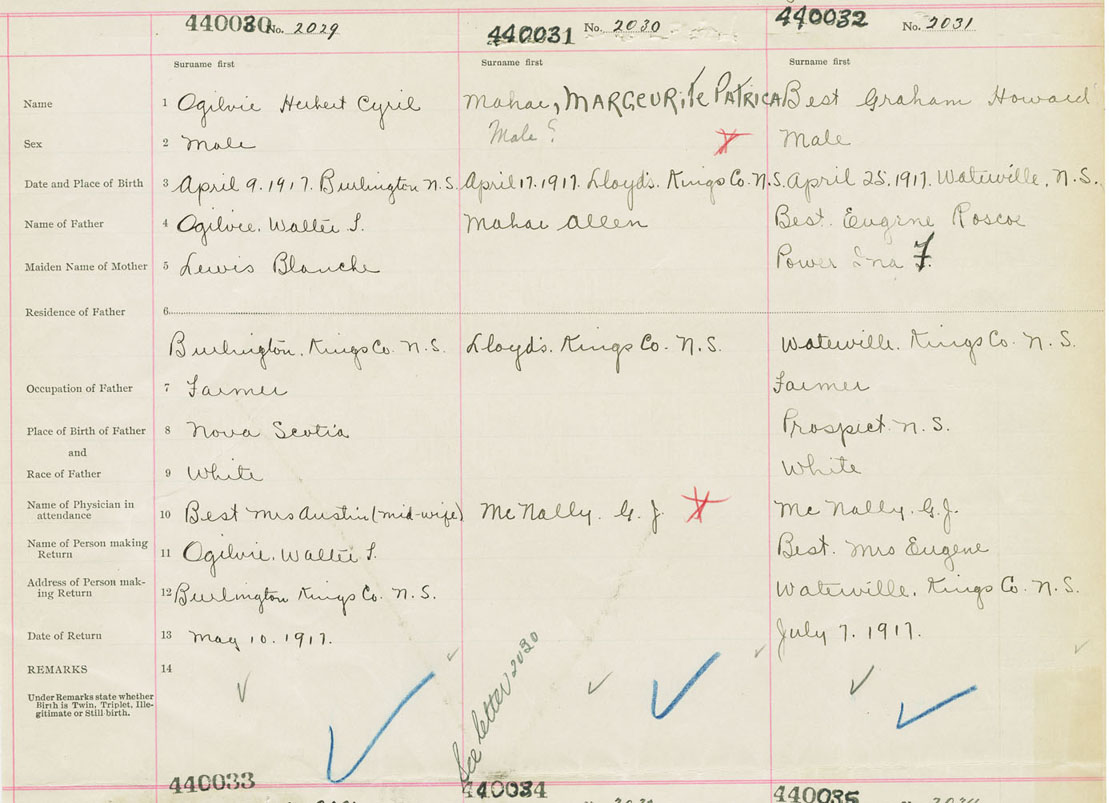 440030 No. 2029
440031 No. 2030
440032 No. 2031
Surname first
Surname first
Surname first
Name 1 Ogilvie Herbert Cyril
Mahar, MARGEURITE PATRICA
Best Graham Howard
Sex 2 Male
Male?
Male
Date and Place of Birth 3 April 9. 1917. Burlington N.S.
April 17. 1917. Lloyds. Kings Co. N.S.
April 25. 1917. Waterville. N.S.
Name of Father 4 Ogilvie. Walter S.
Mahar Allen
Best. Eugene Roscoe
Maiden Name of Mother 5 Lewis Blanche
Power Ina F.
Residence of Father 6
Burlington. Kings Co. N.S.
Lloyds. Kings Co. N.S.
Waterville. Kings Co. N.S.
Occupation of Father 7 Farmer
Farmer
Place of Birth of Father 8 Nova Scotia
Prospect. N.S.
and
Race of Father 9 White
White
Name of Physician in
attendance 10 Best Mrs Austin (mid-wife)
McNally. G. J.
McNally. G. J.
Name of Person making
Return 11 Ogilvie. Walter S.
Best. Mrs Eugene
Address of Person mak-
ing Return 12 Burlington Kings Co. N.S.
Waterville. Kings Co. N.S.
Date of Return 13 May 10. 1917.
July 7. 1917.
REMARKS 14
Under Remarks state whether
Birth is Twin, Triplet, Ille-
gitimate or Still-birth.
See letter 2030
440033
440034
440035